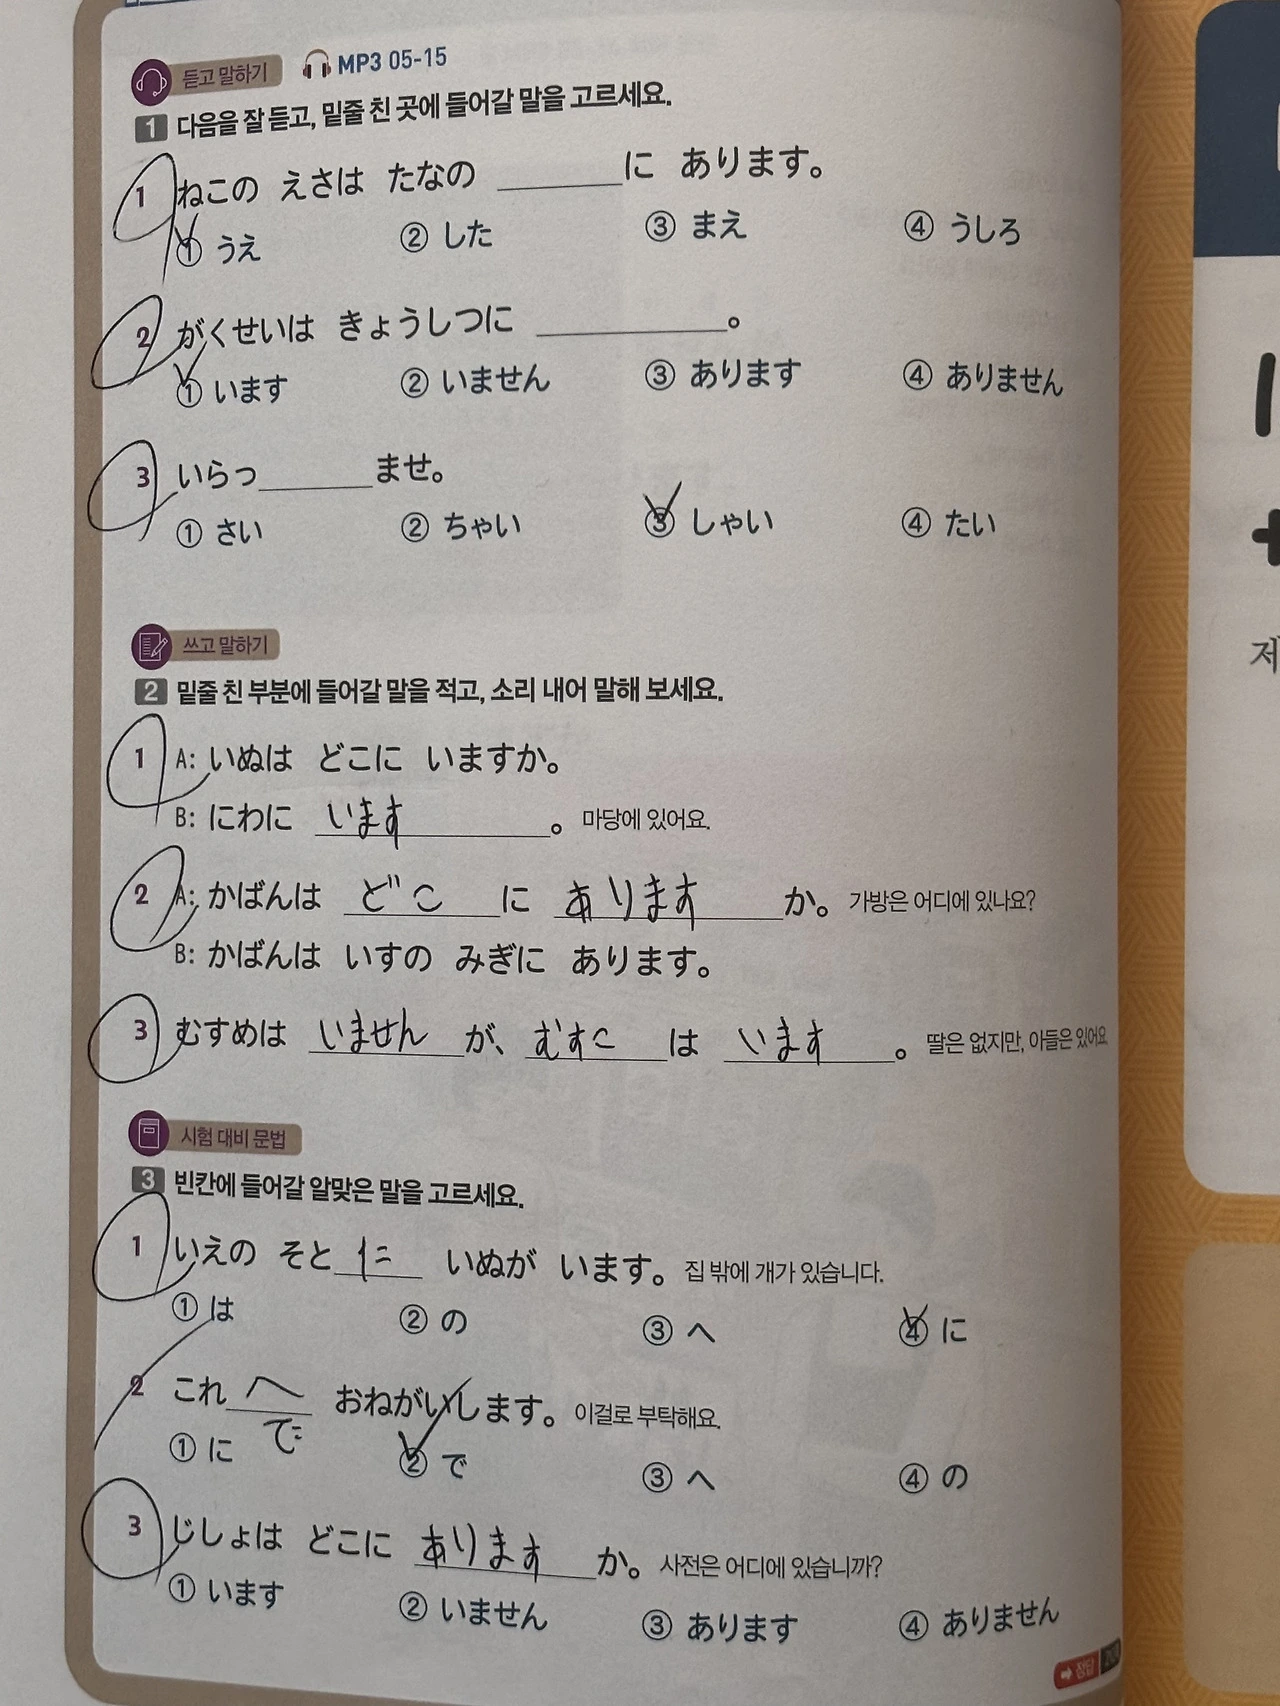 듣고 말하기 MP3 05-15
1 다음을 잘 듣고, 밑줄 친 곳에 들어갈 말을 고르세요.
1 ねこの えさは たなの ________に あります。
① うえ ② した ③ まえ ④ うしろ
2 がくせいは きょうしつに ____________。
① います ② いません ③ あります ④ ありません
3 いらっ________ませ。
① さい ② ちゃい ③ しゃい ④ たい
쓰고 말하기
2 밑줄 친 부분에 들어갈 말을 적고, 소리 내어 말해 보세요.
1 A: いぬは どこに いますか。
B: にわに います。 마당에 있어요.
2 A: かばんは どこ に あります か。 가방은 어디에 있나요?
B: かばんは いすの みぎに あります。
3 むすめは いません が、 むすこ は います。 딸은 없지만, 아들은 있어요.
시험 대비 문법
3 빈칸에 들어갈 알맞은 말을 고르세요.
1 いえの そと に いぬが います。 집 밖에 개가 있습니다.
① は ② の ③ へ ④ に
2 これ へ おねがいします。 이걸로 부탁해요.
で
① に ② で ③ へ ④ の
3 じしょは どこに あります か。 사전은 어디에 있습니까?
① います ② いません ③ あります ④ ありません
정답
제